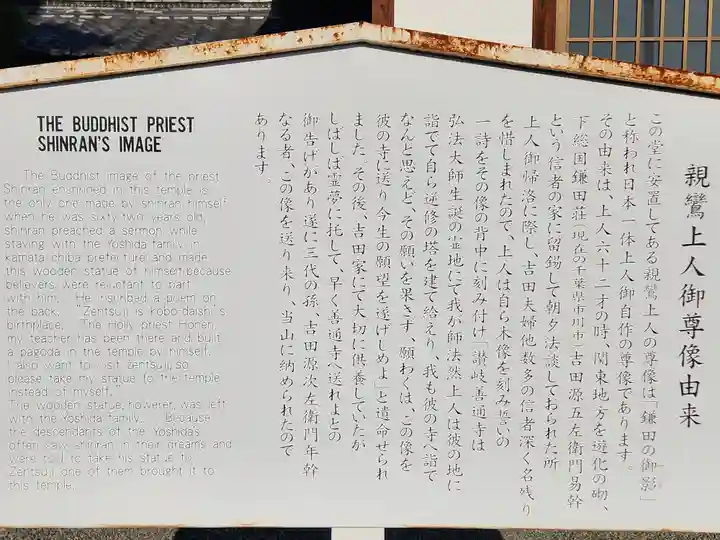 親鸞上人御尊像由来
この堂に安置してある親鸞上人の尊像は「鎌田の御影」
と称われ日本一体上人御自作の尊像であります。
その由来は、上人六十二才の時、関東地方を遊化の砌、
下総国鎌田荘(現在の千葉県市川市)吉田源五左衛門易幹
という信者の家に留錫して朝夕法談しておられた所
上人御帰洛に際し、吉田夫婦他数多の信者深く名残り
を惜しまれたので、上人は自ら木像を刻み誓いの
一詩をその像の背中に刻み付け「讃岐善通寺は
弘法大師生誕の霊地にて我が師法然上人は彼の地に
詣でて自ら逆修の塔を建て給えり、我も彼の寺へ詣で
なんと思えど、その願いを果さず、願わくは、この像を
彼の寺に送り今生の願望を遂げしめよ」と遺命せられ
ました。その後、吉田家にて大切に供養していたが
しばしば霊夢に托して、早く善通寺へ送れよとの
御告げがあり遂に三代の孫、吉田源次左衛門年幹
なる者、この像を送り来り、当山に納められたので
あります。
THE BUDDHIST PRIEST
SHINRAN'S IMAGE
The Buddhist image of the priest
Shinran enshrined in this temple is
the only one made by shinran himself
when he was sixty two years old,
shinran preached a sermon while
staying with the Yoshida family in
kamata chiba prefecture and made
this wooden statue of himself because
believers were reluctant to part
with him. He inscribed a poem on
the back. "Zentsuji is kobo daishi's
birthplace. The Holly priest Honen,
my teacher has been there and built
a pagoda in the temple by himself.
I also want to visit zentsuji, so
please take my statue to the temple
instead of myself."
The wooden statue, however, was left
with the Yoshida family. Because
the descendants of the Yoshida's
often saw shinran in their dreams and
were told to take his statue to
Zentsuji one of them brought it to
this temple.